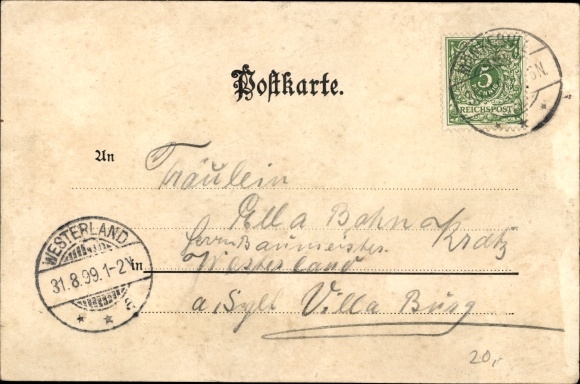 Postkarte.
5
REICHSPOST
An
Fräulein
Ella Bahn
Herrn Baumeister Kratz
WESTERLAND
31.8.99.1-2N
a
in Westerland
a. Sylt Villa Burg
20,-